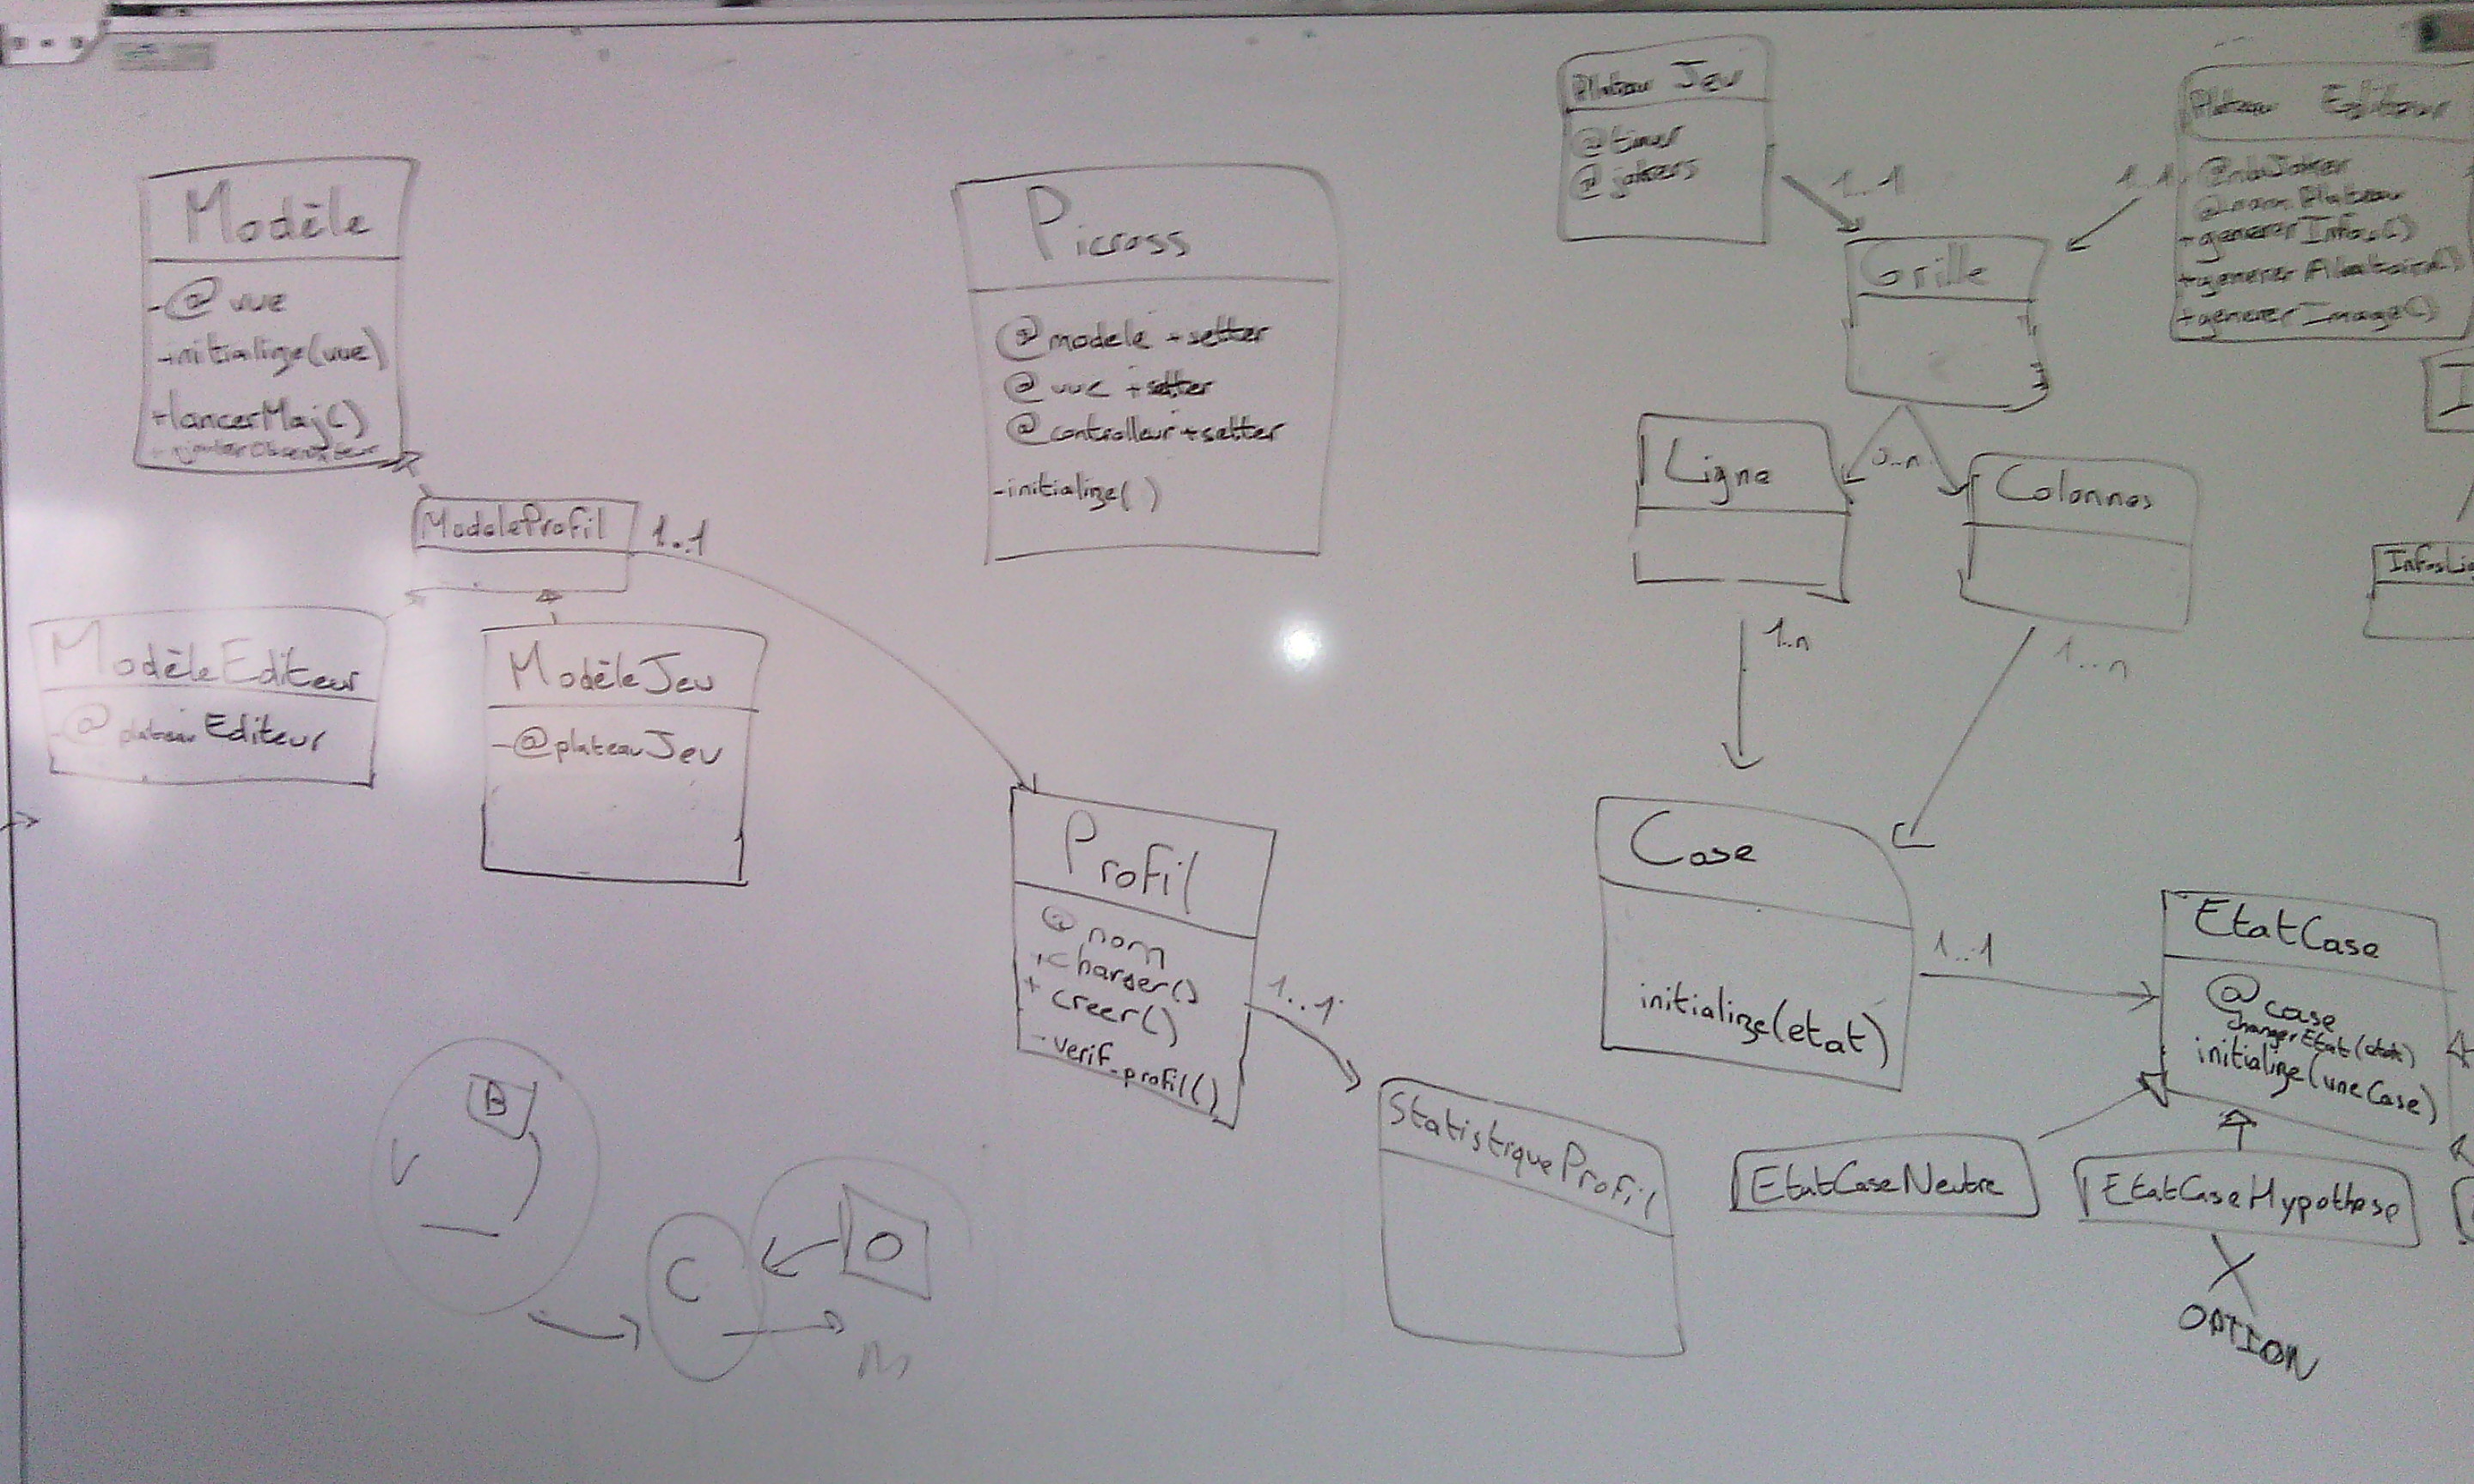 Modèle
-@ vue
-initialize(vue)
+lancerMaj()
+ ajouterObservateur
ModeleProfil
1..1
ModèleEditeur
-@ plateauEditeur
ModèleJeu
-@plateauJeu
Picross
@modele +setter
@vue +setter
@controlleur+setter
-initialize( )
Profil
@nom
+charger()
+ creer()
- verif_profil()
1..1
StatistiqueProfil
B
V
C
O
M
Plateau Jeu
@timer
@jokers
1..1
Plateau Editeur
@nbJoker
@nom Plateau
+genererInfos()
+generer Aleatoire()
+generer Image()
1..1
Grille
Ligne
0..n
Colonnes
1..n
1..n
InfosLig
Case
initialize(etat)
1..1
EtatCase
@case
changerEtat(etat)
initialize(uneCase)
EtatCaseNeutre
EtatCaseHypothese
OPTION